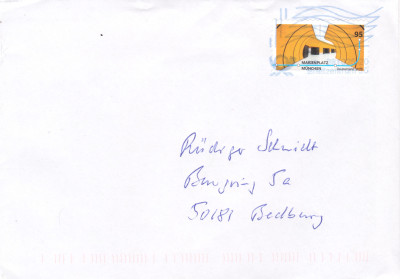 95
MARIENPLATZ
MÜNCHEN
Rüdiger Schmidt
Burgring 5a
50181 Bedburg